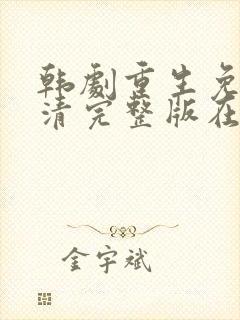 韩劇重生免
清完整版在
金宇斌